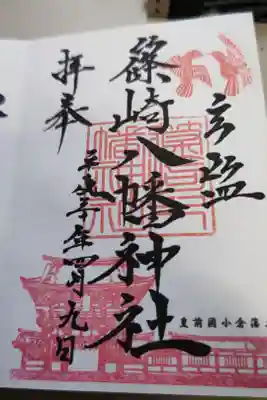 豊前國小倉藩
篠崎八幡神社
拝奉
平成三十年四月九日